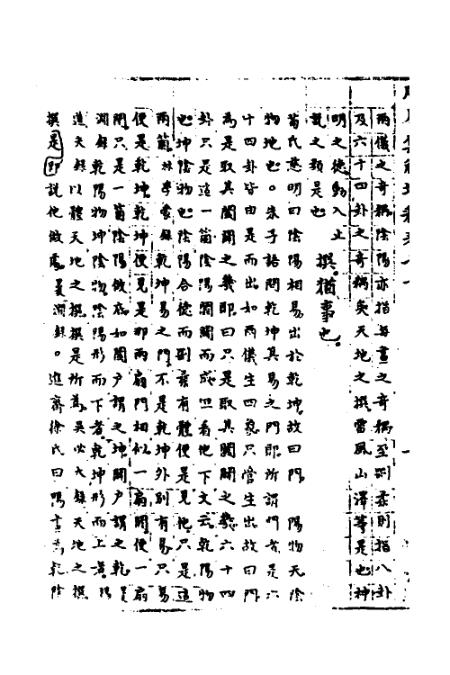 兩儀之奇耦陰陽亦指每畫之奇耦至剛柔則指八卦
及六十四卦之奇耦矣天地之撰雷風山澤等是也神
明之德動入止
說之類是也
撰猶事也
荀氏慈明曰陰陽相易出於乾坤故曰門 陽物天陰
物地也朱子語問乾坤其易之門即所謂門者是六
十四卦皆由是而出如兩儀生四象只管生出故曰門
為是取其闔闢之義即曰只是取其闔闢之義六十四
卦只是這一箇陰陽闔闢而成但看他下文云乾陽物
也坤陰物也陰陽合德而剛柔有體便是見他只是這
兩箇 乾坤易之門不是乾坤外別有易只易
便是乾坤乾坤便是易是那兩扇門相似一扇開便一扇
閉只是一箇陰陽做底如闔户謂之坤闢户謂之乾
淵錄乾陽物坤陰物陰陽形而下者乾坤形而上者
道夫錄以體天地之撰撰是所為 天地之撰
撰是即說他做處 淵錄進齋徐氏曰陽 乾陰